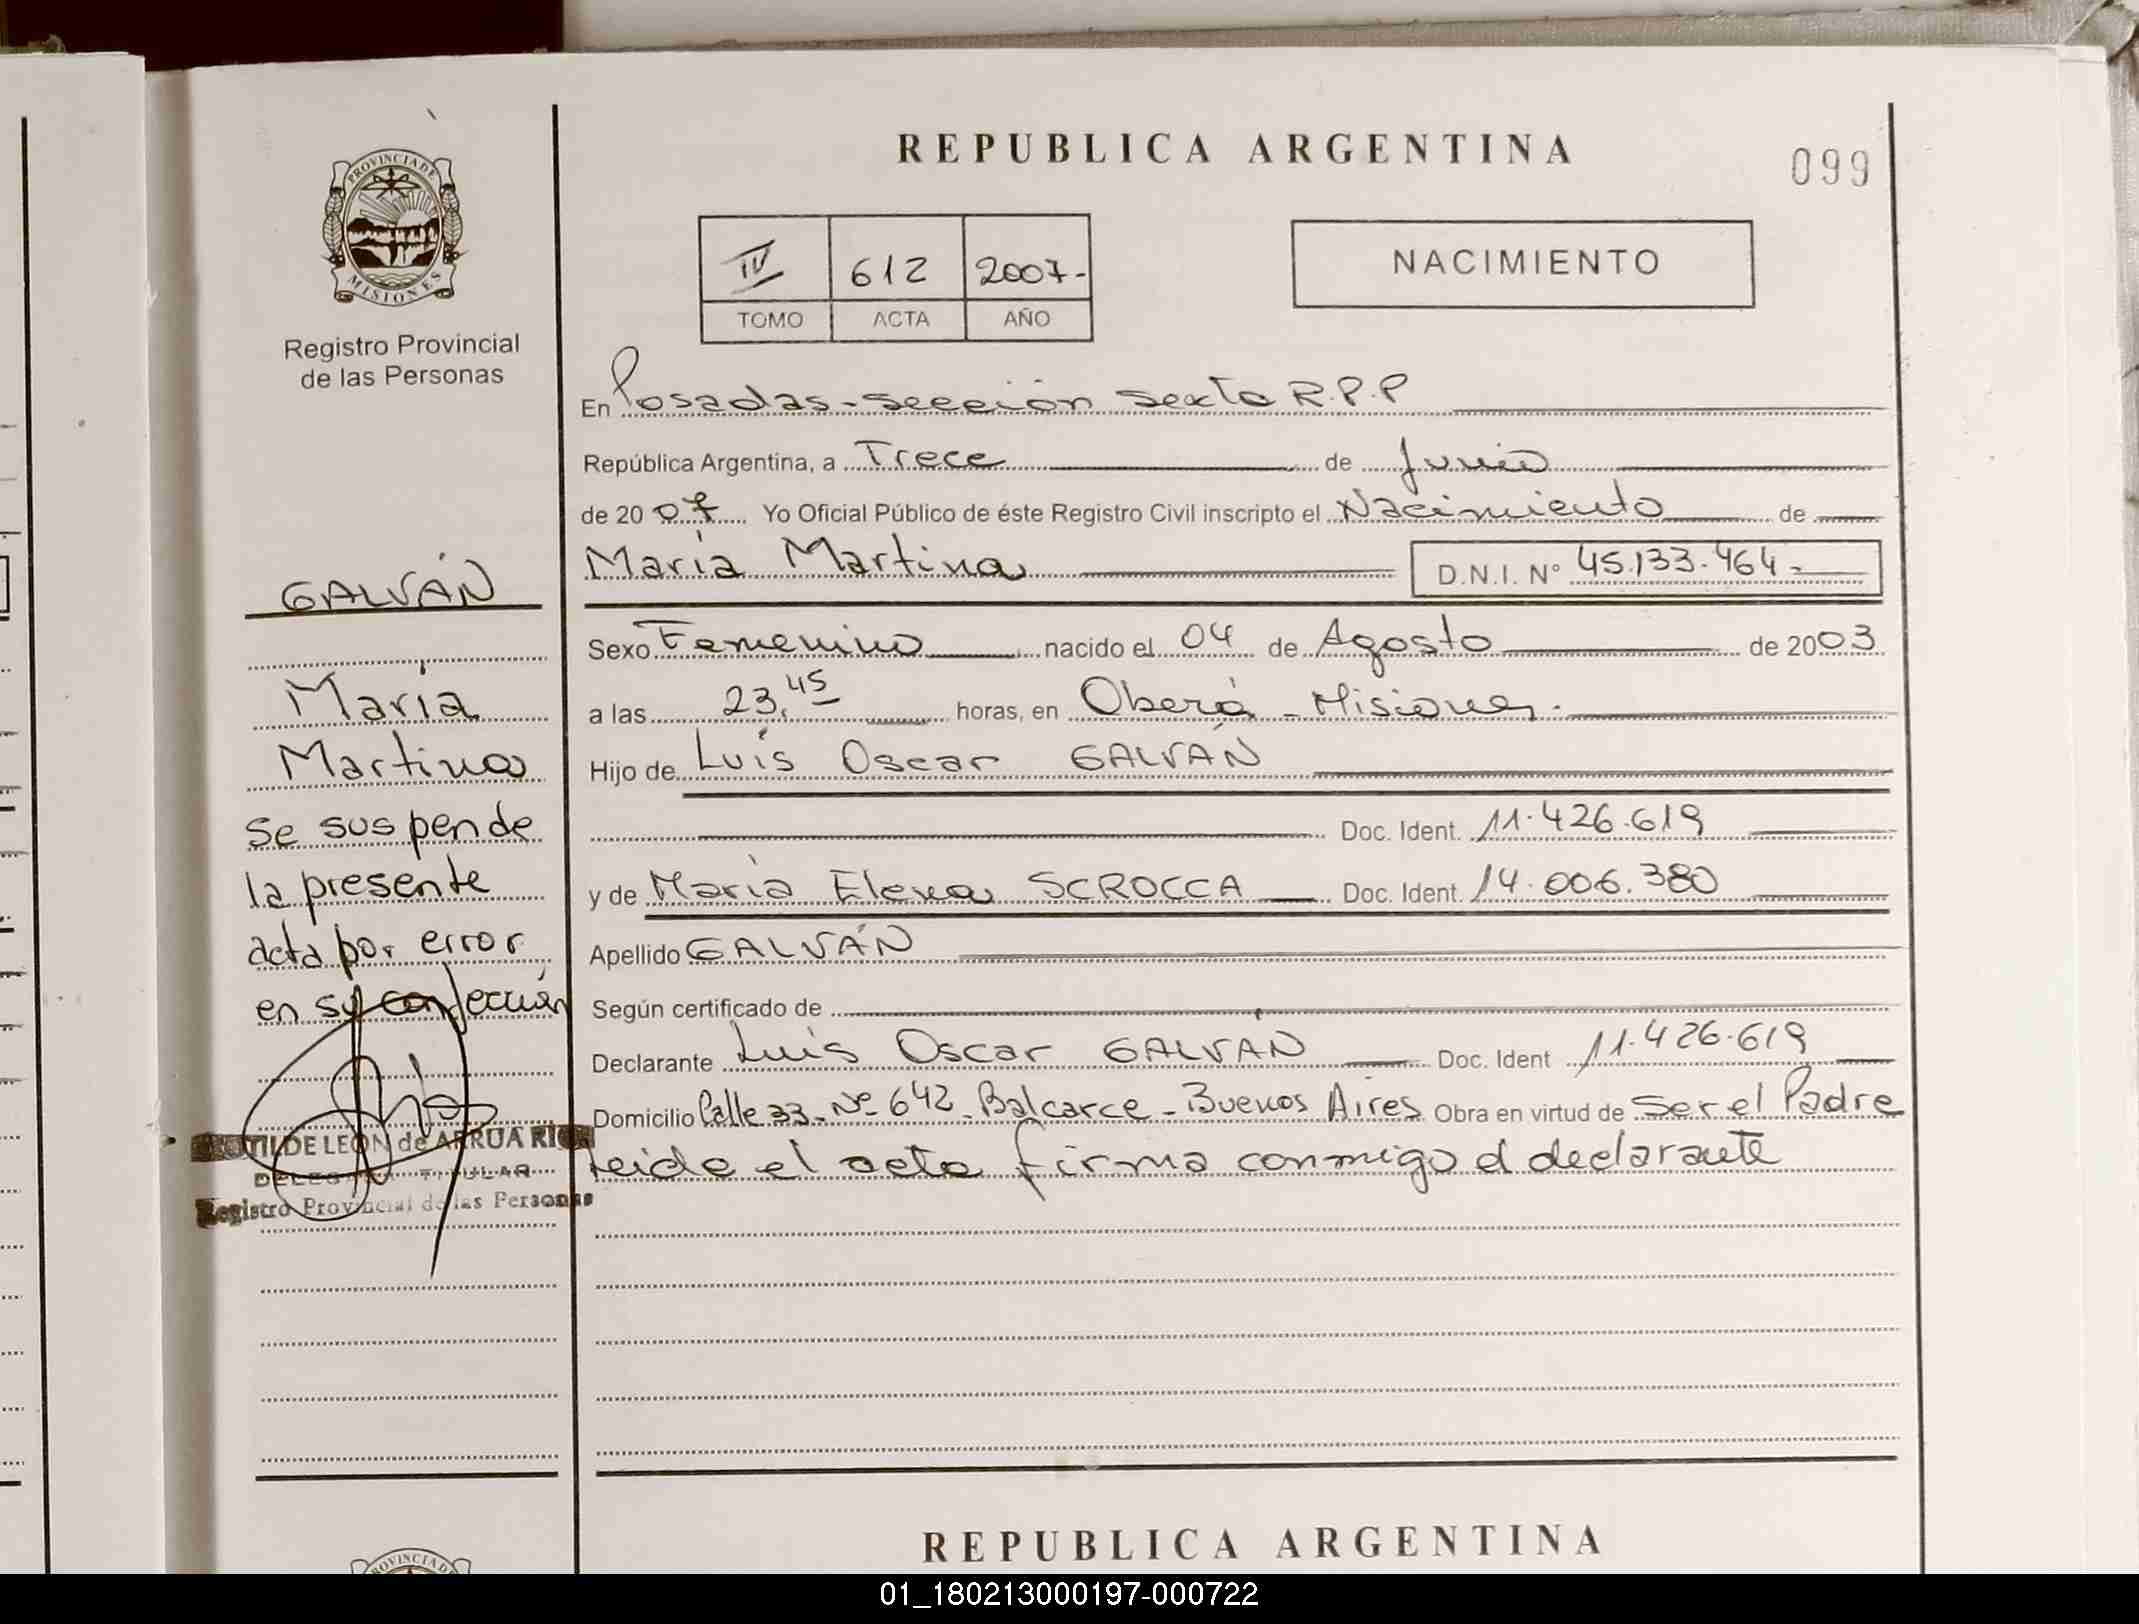 REPUBLICA ARGENTINA
099
PROVINCIA DE
MISIONES
Registro Provincial
de las Personas
IV 612 2007-
TOMO ACTA AÑO
NACIMIENTO
En Posadas - Sección Sexta R.P.P
República Argentina, a Trece de Junio
de 2007 Yo Oficial Público de éste Registro Civil inscripto el Nacimiento de
María Martina D.N.I. N° 45.133.464-
Sexo Femenino nacido el 04 de Agosto de 2003
a las 23,45 horas, en Oberá - Misiones.
Hijo de Luis Oscar GALVÁN
Doc. Ident. 11.426.619
y de María Elena SCROCCA Doc. Ident. 14.006.380
Apellido GALVÁN
Según certificado de
Declarante Luis Oscar GALVÁN Doc. Ident 11.426.619
Domicilio Calle 33 - Nº 642 - Balcarce - Buenos Aires Obra en virtud de ser el Padre
leida el acta firma conmigo el declarante
GALVÁN
María
Martina
Se suspende
la presente
acta por error
en su confección
LEON de ARRUA
DELEGADA TITULAR
Registro Provincial de las Personas
REPUBLICA ARGENTINA
PROVINCIA DE
01_180213000197-000722